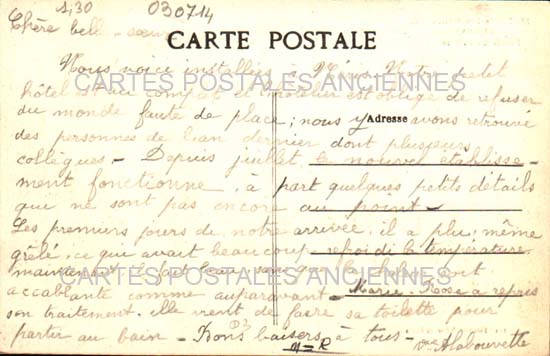 1,30 030714
Chère belle-sœur
CARTE POSTALE
Nous voici installés à Notre petit
CARTES POSTALES ANCIENNES
hôtel est au complet et l'hôtelier est obligé de refuser
du monde faute de place; nous y avons retrouvé
Adresse
des personnes de l'an dernier dont plusieurs
collègues - Depuis juillet, le nouvel établisse-
ment fonctionne, à part quelques petits détails
qui ne sont pas encore au point -
Les premiers jours de notre arrivée, il a plu, même
grêlé, ce qui avait beaucoup refroidi la température,
maintenant il fait beau sans que la chaleur soit
CARTES POSTALES ANCIENNES
accablante comme auparavant - Marie-Rose a repris
son traitement. elle vient de faire sa toilette pour
partir au bain - Bons baisers à tous -
M-R